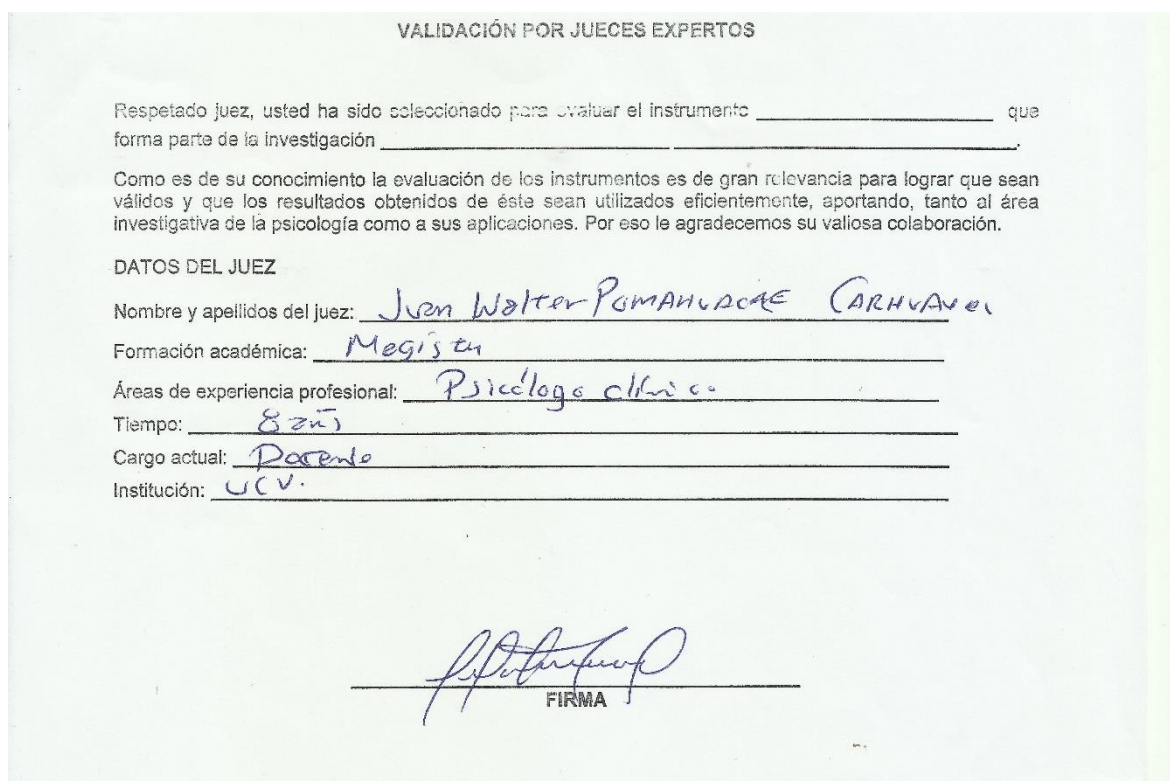 VALIDACIÓN POR JUECES EXPERTOS
Respetado juez, usted ha sido seleccionado para evaluar el instrumento ____________________ que
forma parte de la investigación ____________________ ____________________.
Como es de su conocimiento la evaluación de los instrumentos es de gran relevancia para lograr que sean
válidos y que los resultados obtenidos de éste sean utilizados eficientemente, aportando, tanto al área
investigativa de la psicología como a sus aplicaciones. Por eso le agradecemos su valiosa colaboración.
DATOS DEL JUEZ
Nombre y apellidos del juez: Juan Walter
Formación académica: Magister
Áreas de experiencia profesional: Psicólogo clínico
Tiempo: 8 años
Cargo actual: Docente
Institución: UCV.
FIRMA